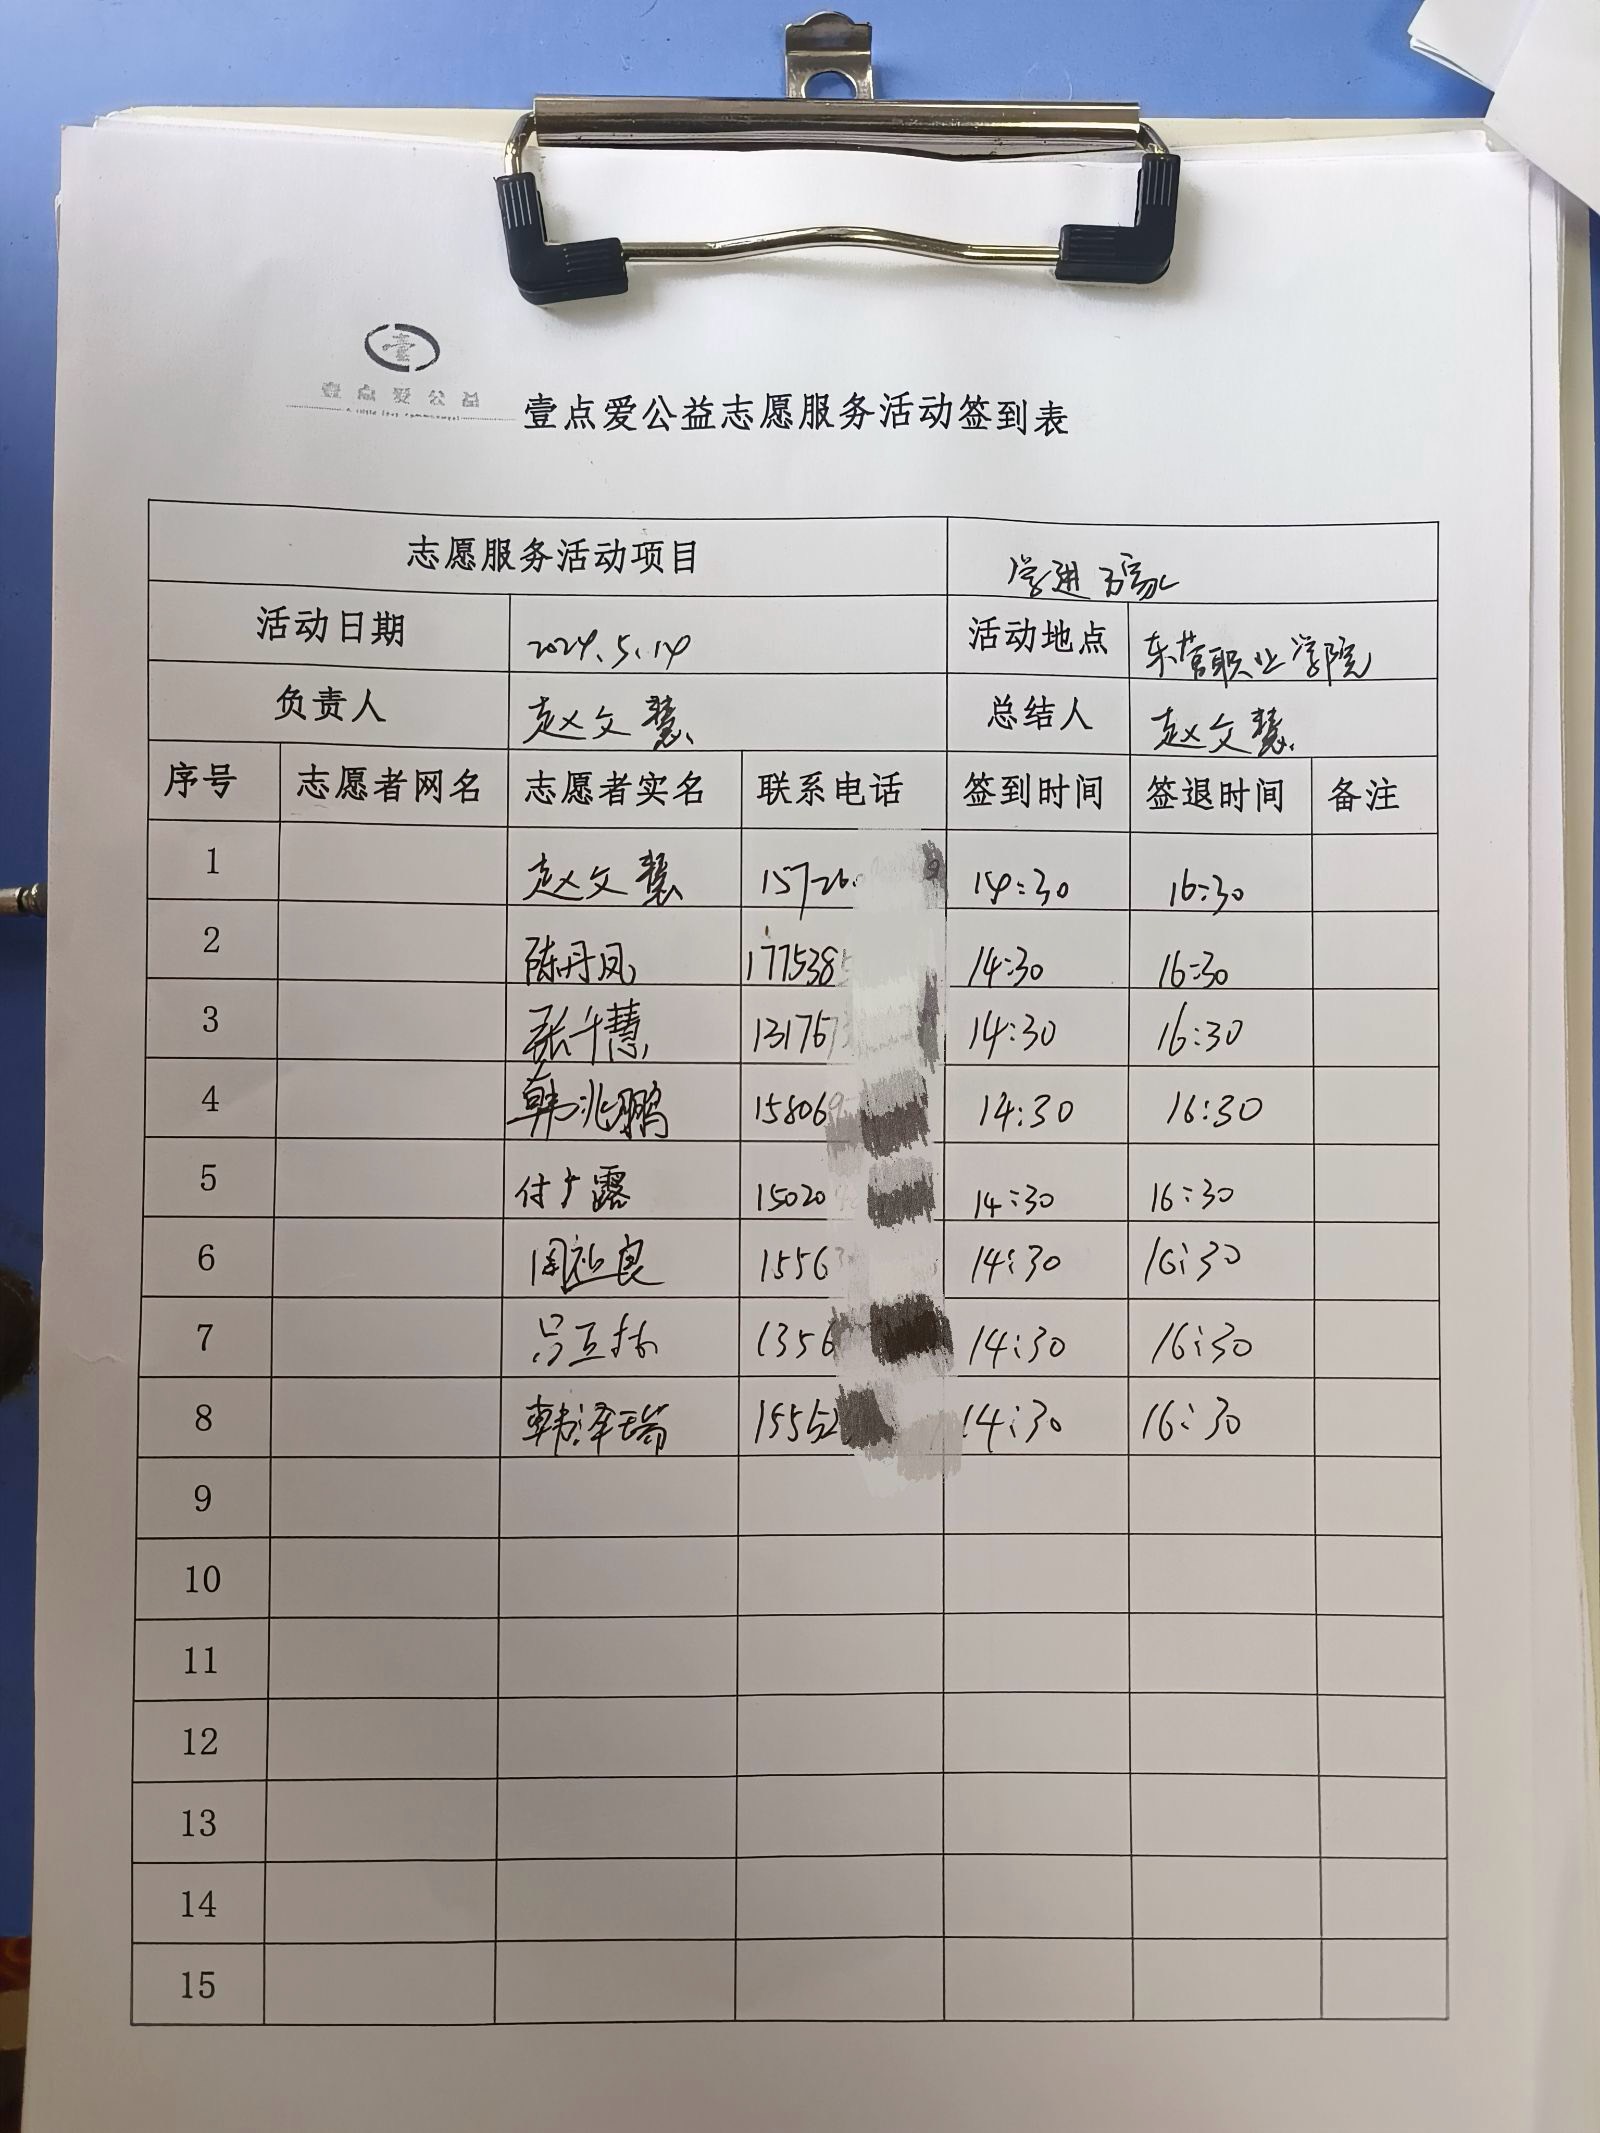 壹点爱公益
壹点爱公益志愿服务活动签到表
志愿服务活动项目 学进万家
活动日期 2024.5.14 活动地点 东营职业学院
负责人 赵文慧 总结人 赵文慧
序号 志愿者网名 志愿者实名 联系电话 签到时间 签退时间 备注
1 赵文慧 15726 9 14:30 16:30
2 陈丹凤 177538 14:30 16:30
3 张千慧 13176 14:30 16:30
4 韩兆鹏 158069 14:30 16:30
5 付广露 15020 14:30 16:30
6 周 良 1556 14:30 16:30
7 吕 1356 14:30 16:30
8 韩泽瑞 15552 14:30 16:30
9
10
11
12
13
14
15